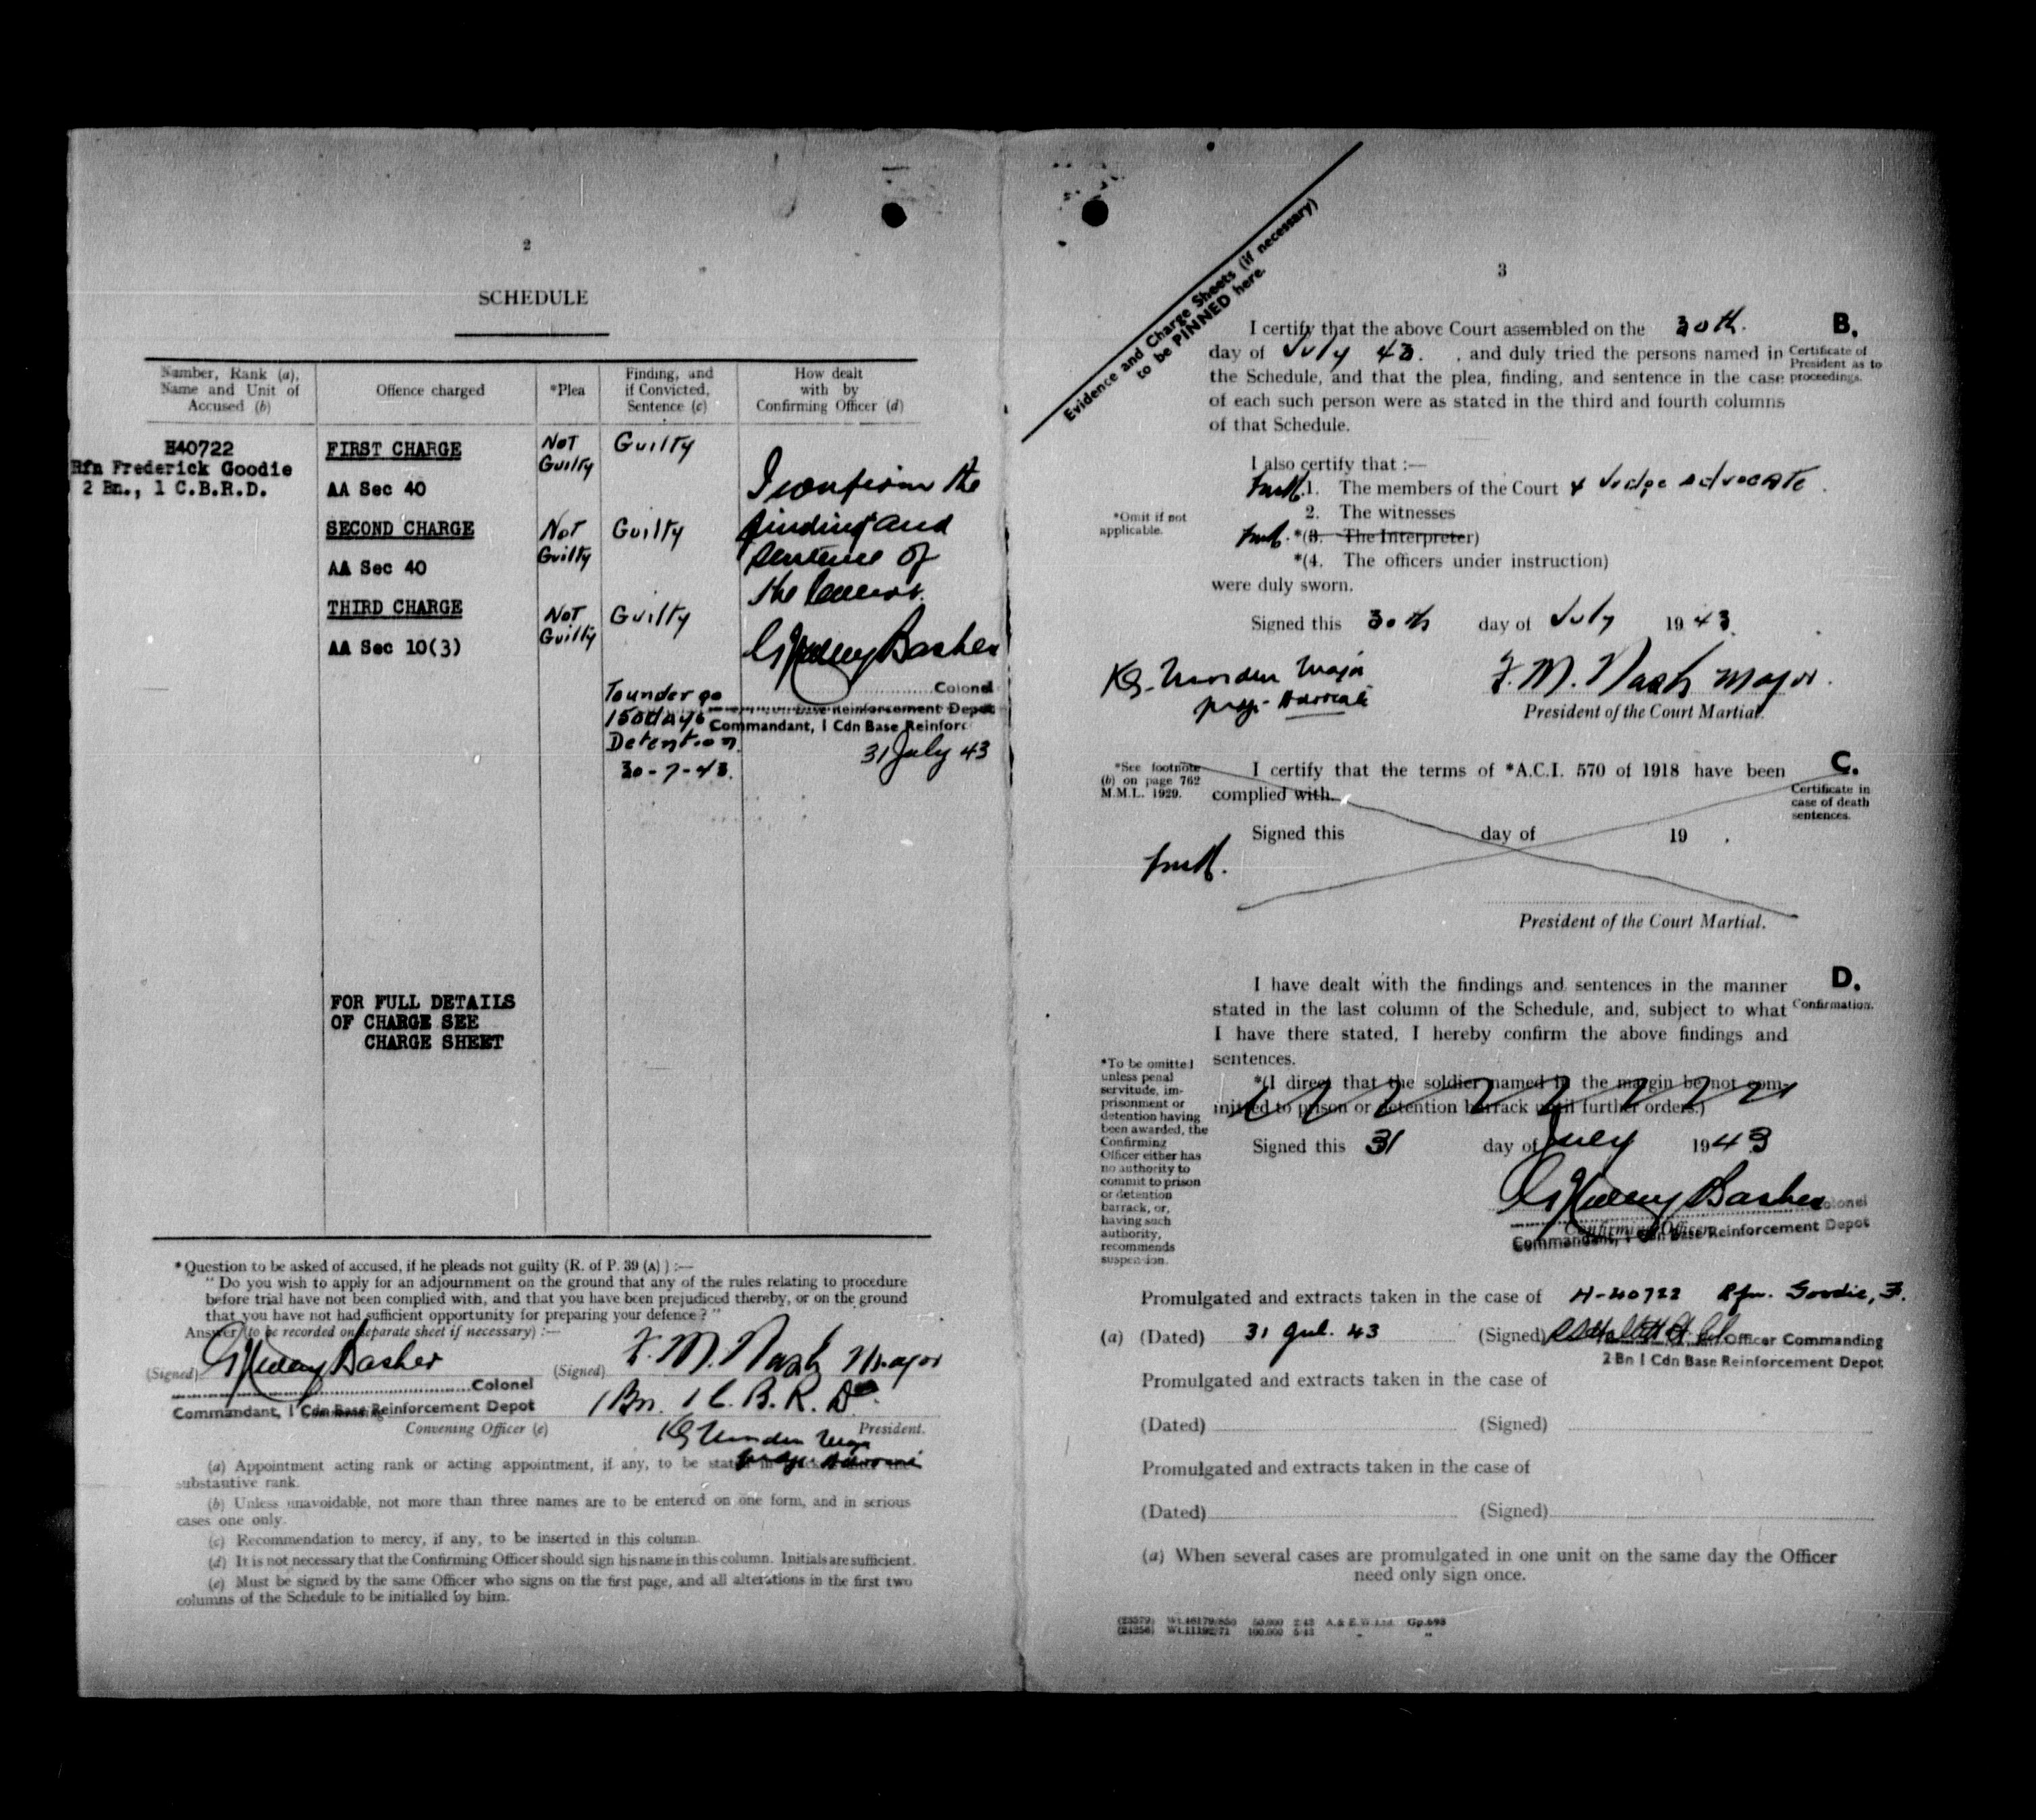 2
SCHEDULE
Number, Rank (a), Name and Unit of Accused (b)
Offence charged
*Plea
Finding, and if Convicted, Sentence (c)
How dealt with by Confirming Officer (d)
H40722
Rfn Frederick Goodie
2 Bn., 1 C.B.R.D.
FIRST CHARGE
AA Sec 40
Not Guilty
Guilty
SECOND CHARGE
AA Sec 40
Not Guilty
Guilty
THIRD CHARGE
AA Sec 10(3)
Not Guilty
Guilty
To undergo
150 days
Detention.
30-7-43.
I confirm the
finding and
sentence of
the Court.
Basher
Colonel
Commandant, 1 Cdn Base Reinforc
Base Reinforcement Depot
31 July 43
FOR FULL DETAILS
OF CHARGE SEE
CHARGE SHEET
*Question to be asked of accused, if he pleads not guilty (R. of P. 39 (A) ) :—
" Do you wish to apply for an adjournment on the ground that any of the rules relating to procedure
before trial have not been complied with, and that you have been prejudiced thereby, or on the ground
that you have not had sufficient opportunity for preparing your defence ? "
Answer (to be recorded on separate sheet if necessary) :—
(Signed) Basher
(Signed) F. M. Nash Major
Colonel
Commandant, 1 Cdn Base Reinforcement Depot
1 Bn. 1 C. B. R. D.
Convening Officer (e)
President.
(a) Appointment acting rank or acting appointment, if any, to be stated in
substantive rank.
(b) Unless unavoidable, not more than three names are to be entered on one form, and in serious
cases one only.
(c) Recommendation to mercy, if any, to be inserted in this column.
(d) It is not necessary that the Confirming Officer should sign his name in this column. Initials are sufficient.
(e) Must be signed by the same Officer who signs on the first page, and all alterations in the first two
columns of the Schedule to be initialled by him.
Evidence and Charge Sheets (if necessary)
to be PINNED here.
3
B.
Certificate of
President as to
proceedings.
I certify that the above Court assembled on the 30th.
day of July 43. , and duly tried the persons named in
the Schedule, and that the plea, finding, and sentence in the case
of each such person were as stated in the third and fourth columns
of that Schedule.
I also certify that :—
1. The members of the Court & Judge Advocate.
2. The witnesses
*Omit if not
applicable.
*(3. The Interpreter)
*(4. The officers under instruction)
were duly sworn.
Signed this 30th day of July 1943.
Major
F. M. Nash Major.
President of the Court Martial.
*See footnote
(b) on page 762
M.M.L. 1929.
C.
Certificate in
case of death
sentences.
I certify that the terms of *A.C.I. 570 of 1918 have been
complied with.
Signed this day of 19 .
President of the Court Martial.
D.
Confirmation.
I have dealt with the findings and sentences in the manner
stated in the last column of the Schedule, and, subject to what
I have there stated, I hereby confirm the above findings and
sentences.
*To be omitted
unless penal
servitude, im-
prisonment or
detention having
been awarded, the
Confirming
Officer either has
no authority to
commit to prison
or detention
barrack, or,
having such
authority,
recommends
suspension.
*(I direct that the soldier named in the margin be not com-
mitted to prison or detention barrack until further orders.)
Signed this 31 day of July 1943
Basher Colonel
Confirming Officer
Commandant, 1 Cdn Base Reinforcement Depot
Promulgated and extracts taken in the case of H-40722 Rfn. Goodie, F.
(a) (Dated) 31 Jul. 43 (Signed) Officer Commanding
2 Bn 1 Cdn Base Reinforcement Depot
Promulgated and extracts taken in the case of
(Dated) (Signed)
Promulgated and extracts taken in the case of
(Dated) (Signed)
(a) When several cases are promulgated in one unit on the same day the Officer
need only sign once.